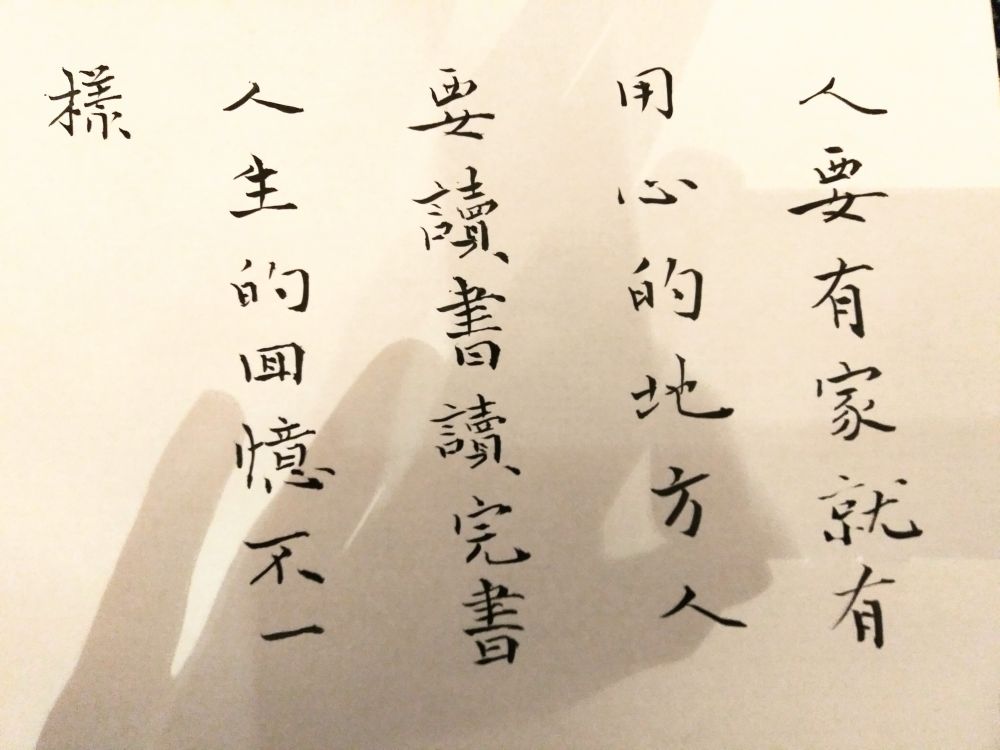 人要有家就有
用心的地方人
要讀書讀完書
人生的回憶不一
樣